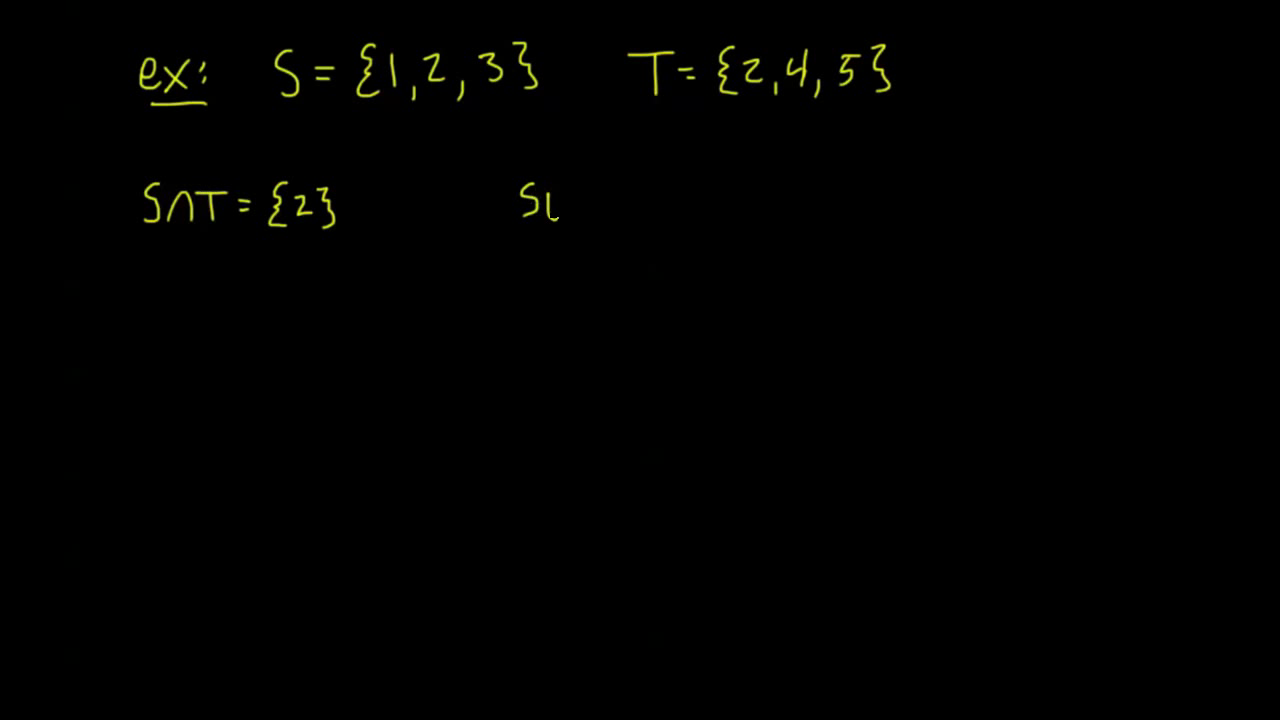 ex: S = {1, 2, 3} T = {2, 4, 5}
S∩T = {2} S